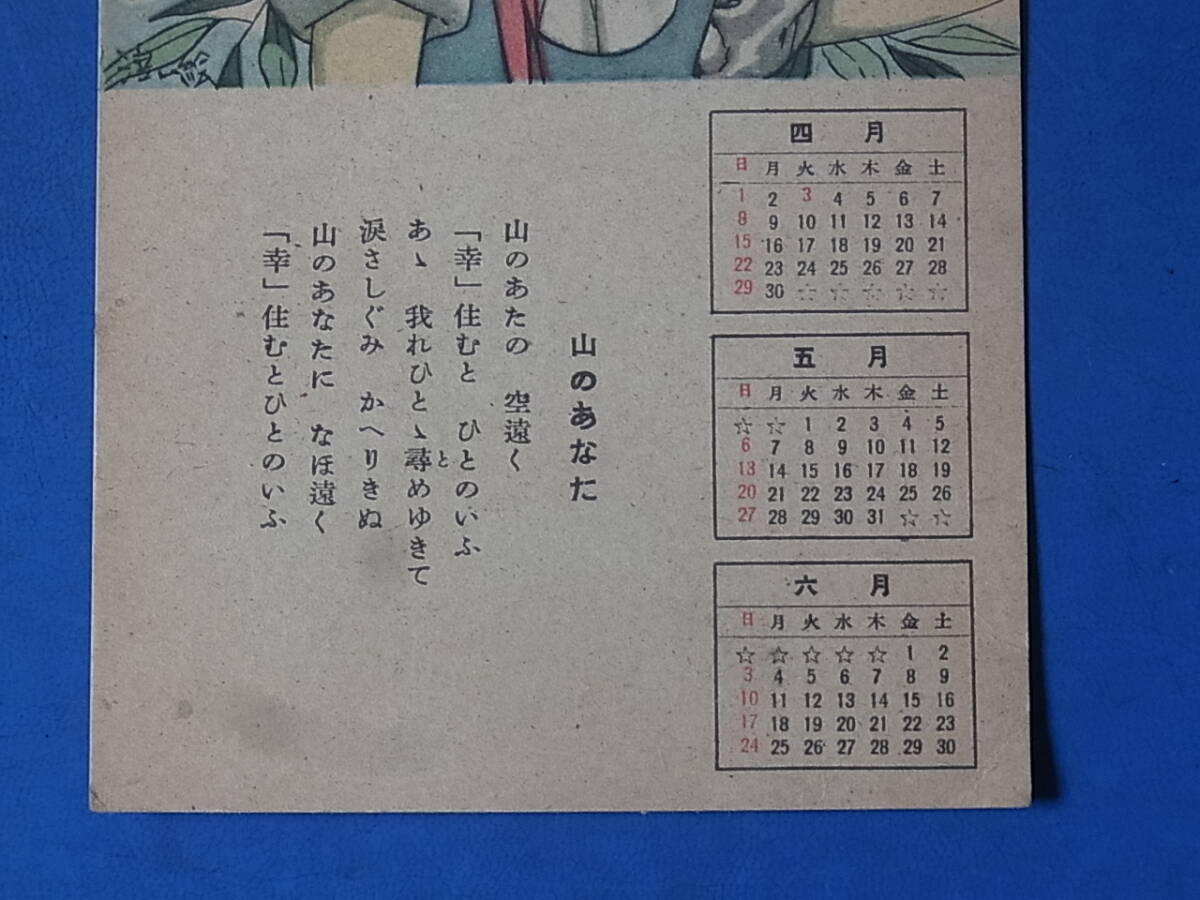 山のあなた
山のあたの 空遠く
「幸」住むと ひとのいふ
あゝ 我れひとゝ尋めゆきて
と
涙さしぐみ かへりきぬ
山のあなたに なほ遠く
「幸」住むとひとのいふ
四 月
日 月 火 水 木 金 土
1 2 3 4 5 6 7
8 9 10 11 12 13 14
15 16 17 18 19 20 21
22 23 24 25 26 27 28
29 30 ☆ ☆ ☆ ☆ ☆
五 月
日 月 火 水 木 金 土
☆ ☆ 1 2 3 4 5
6 7 8 9 10 11 12
13 14 15 16 17 18 19
20 21 22 23 24 25 26
27 28 29 30 31 ☆ ☆
六 月
日 月 火 水 木 金 土
☆ ☆ ☆ ☆ ☆ 1 2
3 4 5 6 7 8 9
10 11 12 13 14 15 16
17 18 19 20 21 22 23
24 25 26 27 28 29 30